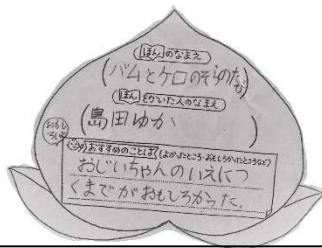 ほんのなまえ
(バムとケロのそらのたび)
ほんをかいた人のなまえ
(島田ゆか)
おすすめのことば(よかったところ・おもしろかったところなど)
おじいちゃんのいえにつ
くまでがおもしろかった。